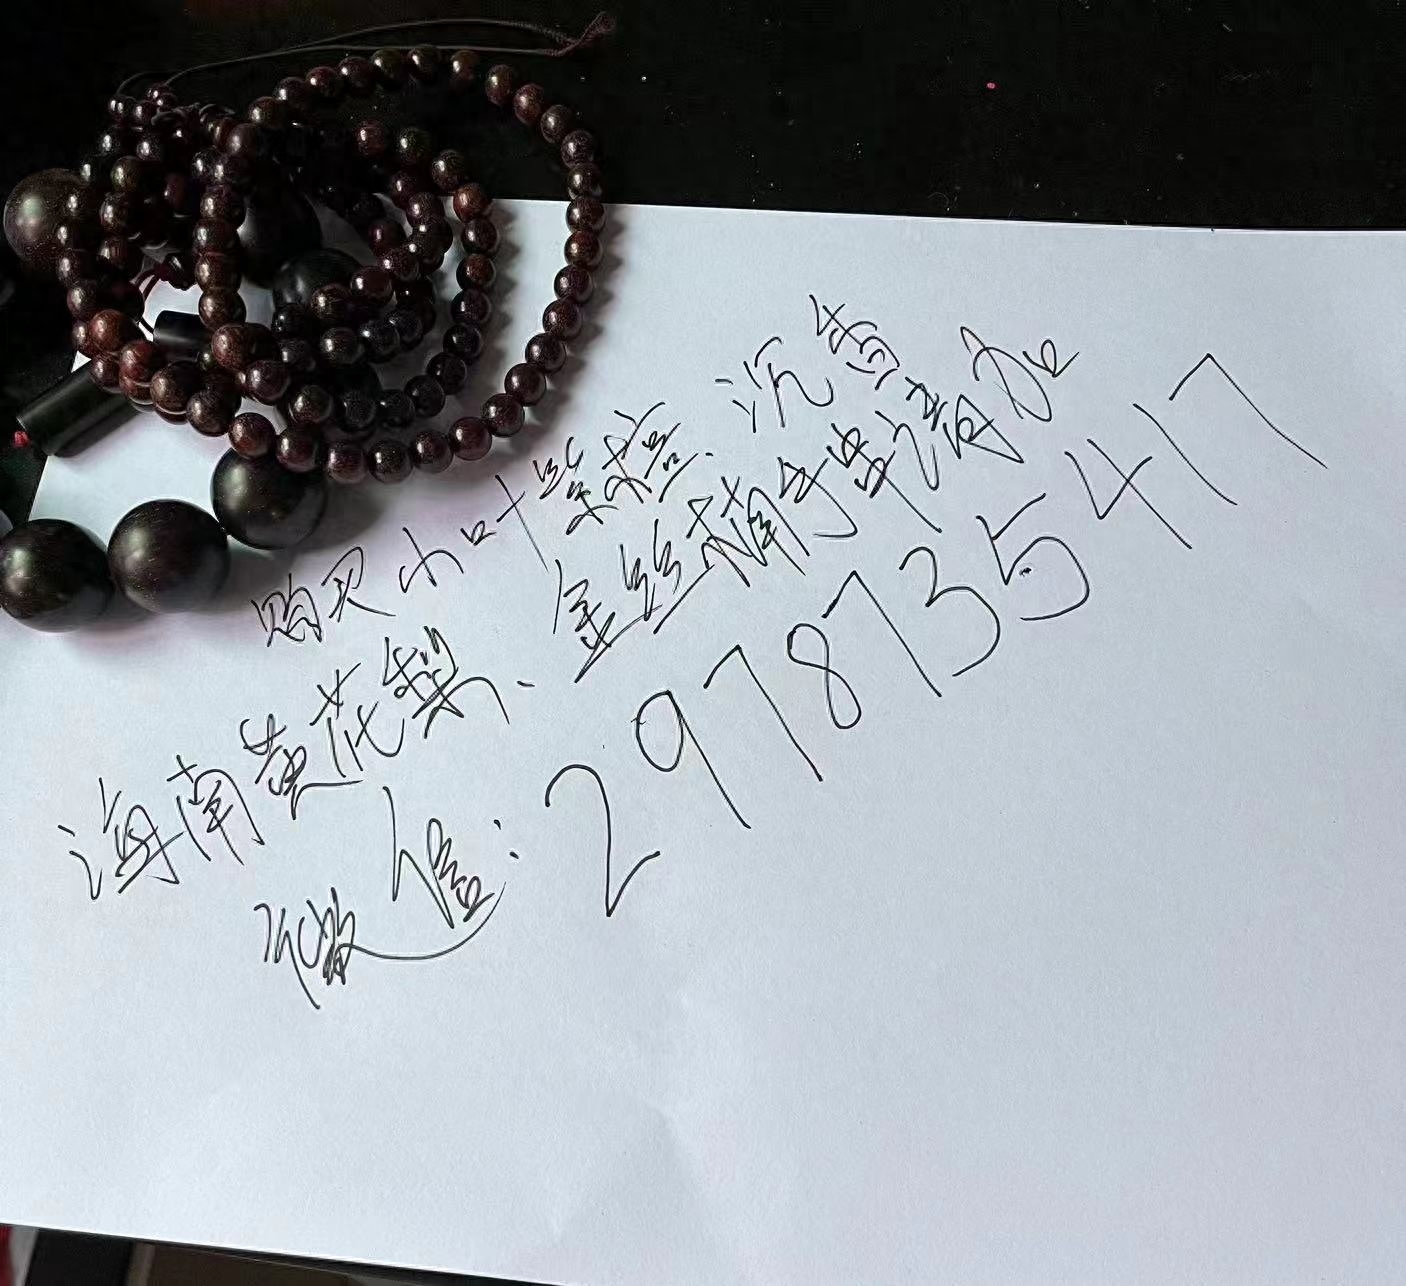 购买小叶紫檀、沉香
海南黄花梨、金丝楠手串请加
微信：2978735417